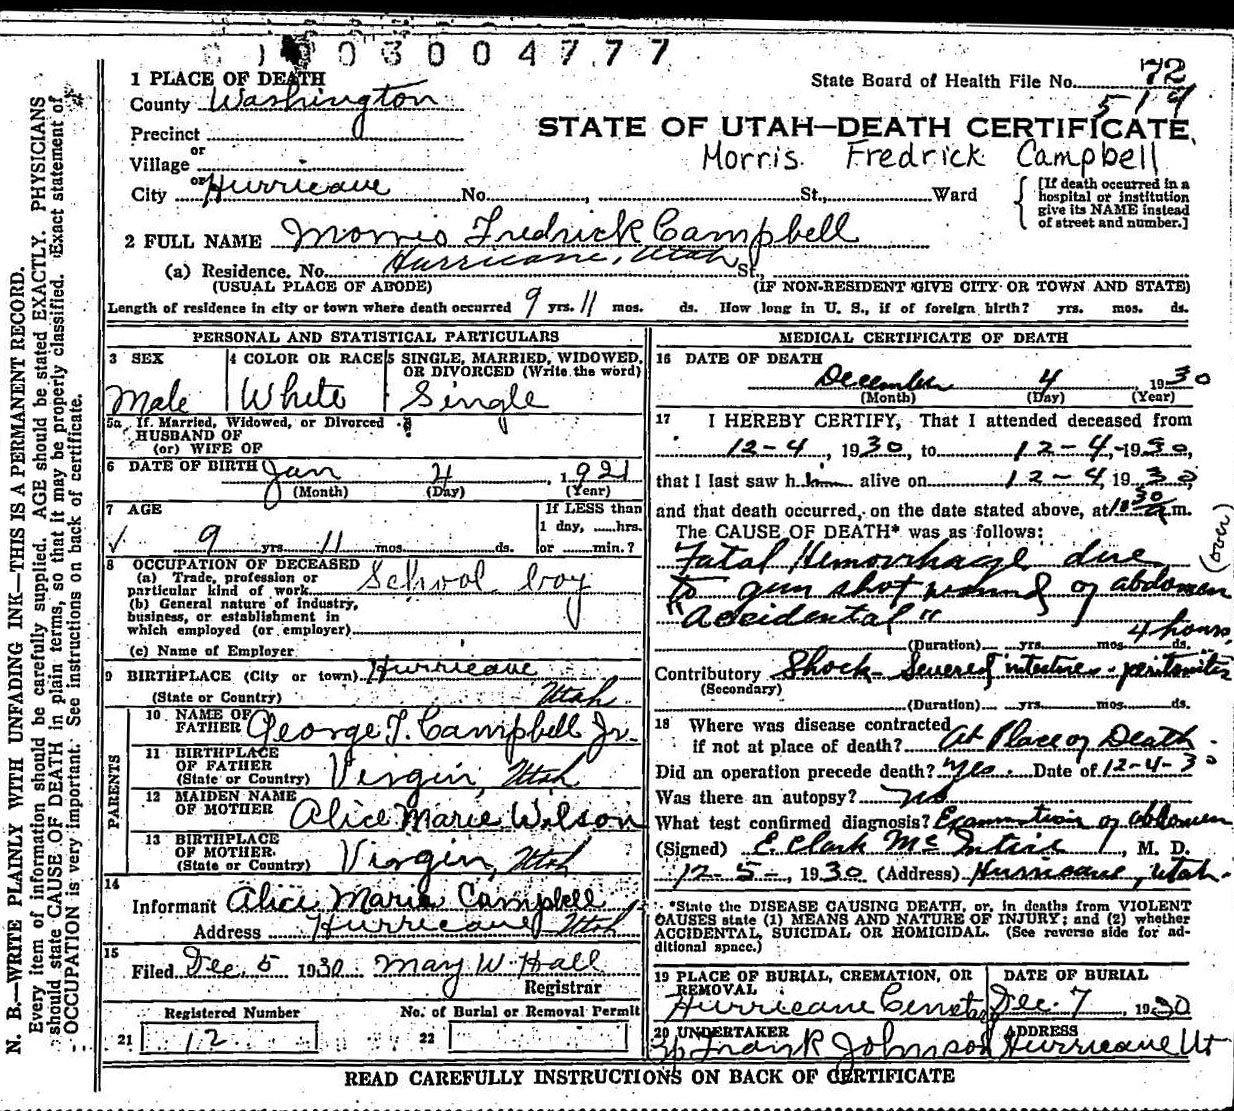 003004777
1 PLACE OF DEATH
County Washington
Precinct
or
Village
or
City Hurricane No. , St., Ward
State Board of Health File No. 72
514
STATE OF UTAH—DEATH CERTIFICATE
Morris Fredrick Campbell
[If death occurred in a
hospital or institution
give its NAME instead
of street and number.]
2 FULL NAME Morris Fredrick Campbell
(a) Residence. No. Hurricane, Utah St.,
(USUAL PLACE OF ABODE) (IF NON-RESIDENT GIVE CITY OR TOWN AND STATE)
Length of residence in city or town where death occurred 9 yrs. 11 mos. ds. How long in U. S., if of foreign birth? yrs. mos. ds.
PERSONAL AND STATISTICAL PARTICULARS
3 SEX 4 COLOR OR RACE 5 SINGLE, MARRIED, WIDOWED,
OR DIVORCED (Write the word)
Male White Single
5a If Married, Widowed, or Divorced
HUSBAND OF
(or) WIFE OF
6 DATE OF BIRTH Jan 4, 1921
(Month) (Day) (Year)
7 AGE If LESS than
1 day, hrs.
9 yrs. 11 mos. ds. or min.?
8 OCCUPATION OF DECEASED
(a) Trade, profession or
particular kind of work School boy
(b) General nature of industry,
business, or establishment in
which employed (or employer)
(c) Name of Employer
9 BIRTHPLACE (City or town) Hurricane
(State or Country) Utah
PARENTS
10 NAME OF
FATHER George T. Campbell Jr.
11 BIRTHPLACE
OF FATHER
(State or Country) Virgin, Utah
12 MAIDEN NAME
OF MOTHER Alice Marie Wilson
13 BIRTHPLACE
OF MOTHER
(State or Country) Virgin, Utah
14
Informant Alice Marie Campbell
Address Hurricane Utah
15
Filed Dec. 5 1930 Mary W. Hall
Registrar
Registered Number No. of Burial or Removal Permit
21 12 22
MEDICAL CERTIFICATE OF DEATH
16 DATE OF DEATH
December 4, 1930
(Month) (Day) (Year)
17 I HEREBY CERTIFY, That I attended deceased from
12-4, 1930, to 12-4, 1930,
that I last saw him alive on 12-4, 1930
and that death occurred, on the date stated above, at 11 30 a.m.
The CAUSE OF DEATH* was as follows:
(over)
Fatal Hemorrhage due
to gun shot wound of abdomen
"Accidental"
4 hours
(Duration) yrs. mos. ds.
Contributory Shock- Severed intestines - peritonitis
(Secondary)
(Duration) yrs. mos. ds.
18 Where was disease contracted
if not at place of death? At Place of Death
Did an operation precede death? Yes. Date of 12-4-30
Was there an autopsy? No
What test confirmed diagnosis? Examination of abdomen
(Signed) E. Clark McIntire, M. D.
12-5-, 1930 (Address) Hurricane, Utah.
*State the DISEASE CAUSING DEATH, or, in deaths from VIOLENT
CAUSES state (1) MEANS AND NATURE OF INJURY; and (2) whether
ACCIDENTAL, SUICIDAL OR HOMICIDAL. (See reverse side for ad-
ditional space.)
19 PLACE OF BURIAL, CREMATION, OR
REMOVAL DATE OF BURIAL
Hurricane Cemetary Dec. 7, 1930
20 UNDERTAKER ADDRESS
Frank Johnson Hurricane Ut
READ CAREFULLY INSTRUCTIONS ON BACK OF CERTIFICATE
N. B.—WRITE PLAINLY WITH UNFADING INK—THIS IS A PERMANENT RECORD.
Every item of information should be carefully supplied. AGE should be stated EXACTLY. PHYSICIANS
should state CAUSE OF DEATH in plain terms, so that it may be properly classified. Exact statement of
OCCUPATION is very important. See instructions on back of certificate.